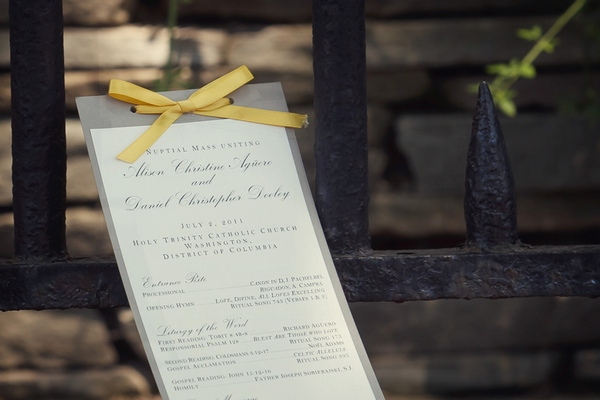 Nuptial Mass uniting
Alison Christine Agüero
and
Daniel Christopher Dooley
July 2, 2011
Holy Trinity Catholic Church
Washington,
District of Columbia
Entrance Rite
Processional Canon in D, J. Pachelbel
Rigaudon, A. Campra
Opening Hymn Love, Divine, All Loves Excelling
Ritual Song 743 (Verses 1 & 
Liturgy of the Word
First Reading: Tobit 8:4b-8 Richard Agüero
Responsorial Psalm 128 Blest Are Those who Love
Ritual Song 173
Second Reading: Colossians 3:12-17 Noël Adams
Gospel Acclamation Celtic Alleluia
Ritual Song
Gospel Reading: John 15:12-16
Homily Father Joseph S.J.